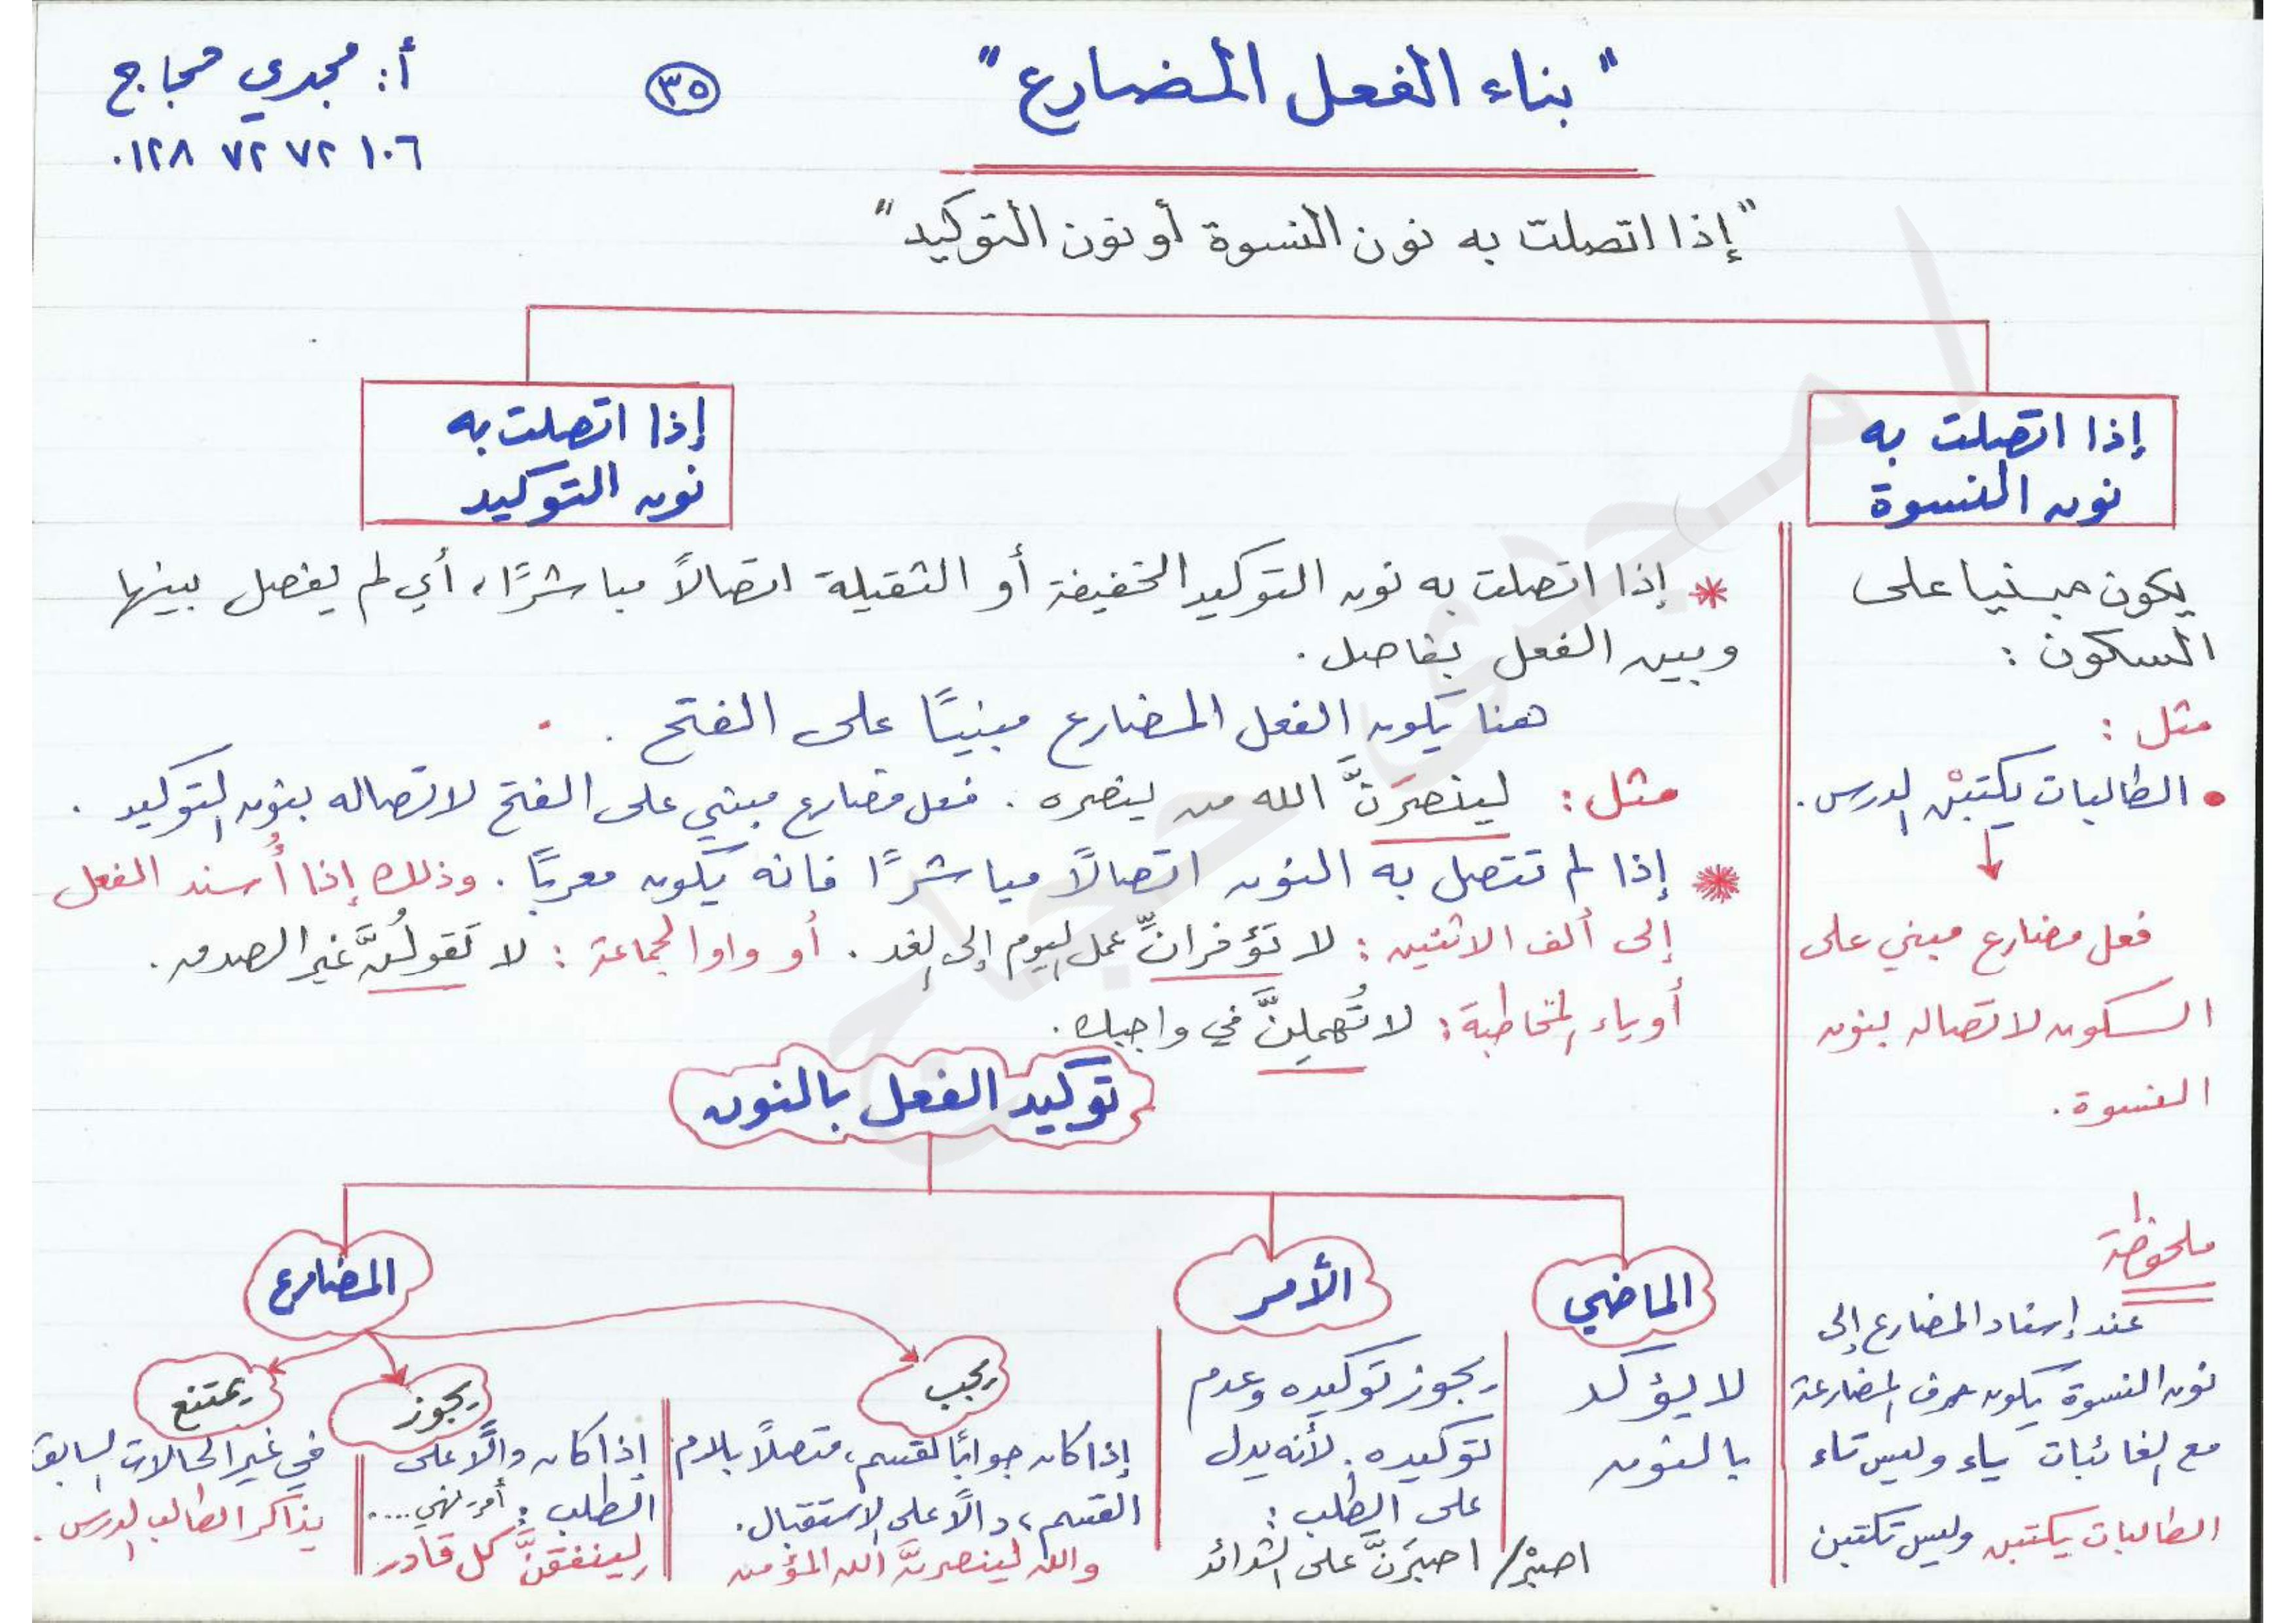 "بناء الفعل المضارع"
٣٥
أ: مجدي حجاج
٠١٢٨ ٧٢ ٧٢ ١٠٦
"إذا اتصلت به نون النسوة أو نون التوكيد"
إذا اتصلت به
نون النسوة
يكون مبنيا على
السكون :
مثل :
• الطالبات يكتبْن الدرس.
فعل مضارع مبني على
السكون لاتصاله بنون
النسوة.
ملحوظة
عند إسناد المضارع إلى
نون النسوة يكون حرف المضارعة
مع الغائبات ياء وليس تاء
الطالبات يكتبن وليس تكتبن
إذا اتصلت به
نون التوكيد
* إذا اتصلت به نون التوكيد الخفيفة أو الثقيلة اتصالاً مباشرًا، أي لم يفصل بينها
وبين الفعل بفاصل.
هنا يكون الفعل المضارع مبنيًا على الفتح .
مثل : لينصرَنَّ الله من ينصره . فعل مضارع مبني على الفتح لاتصاله بنون التوكيد .
* إذا لم تتصل به النون اتصالاً مباشرًا فانه يكون معربًا . وذلك إذا أُسند الفعل
إلى ألف الاثنين : لا تؤخران عمل اليوم إلى الغد . أو واو الجماعة : لا تقولُنَّ غير الصدق.
أو ياء المخاطبة : لا تُهملِنَّ في واجبك.
توكيد الفعل بالنون
الماضي
لا يؤكد
بالنون
الأمر
يجوز توكيده وعدم
توكيده. لأنه يدل
على الطلب :
اصبرْ/ اصبرَنَّ على الشدائد
المضارع
يجب
إذا كان جوابًا لقسم، متصلاً بلام
القسم، دالًا على الاستقبال.
والله لينصرنَّ الله المؤمن
يجوز
إذا كان دالًا على
الطلب : أمر-نهي....
لينفقنَّ كل قادر
يمتنع
في غير الحالات السابقة
يذاكر الطالب الدرس .
أ/ مجدى حجاج